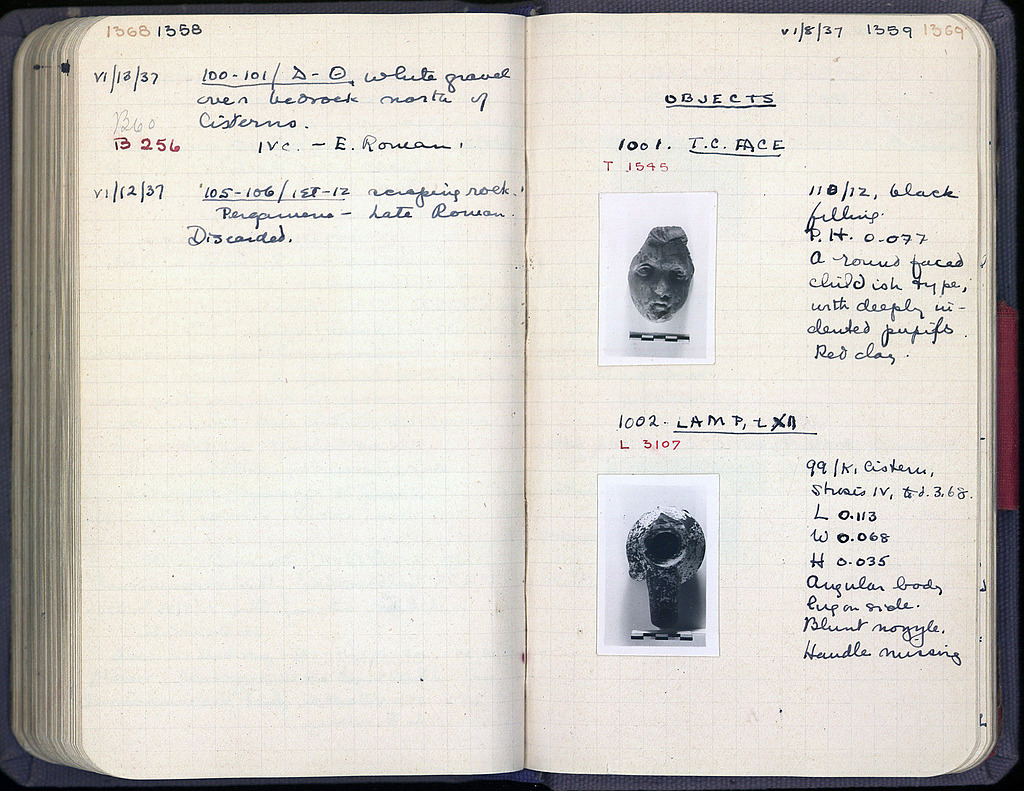 1368 1358
VI/13/37
100-101/Δ-Θ, white gravel
over bedrock north of
Cisterns.
B60
B 256
IVc. - E. Roman.
VI/12/37
105-106/ΙΣΤ-12 scraping rock.
Pergamene - Late Roman.
Discarded.
VI/8/37 1359 1369
OBJECTS
1001. T.C. FACE
T 1545
110/12, black
filling.
P.H. 0.077
A round faced
childish type,
with deeply in-
dented pupils.
Red clay.
1002. LAMP,
L 3107
99/K, Cistern,
Strosis IV, to d. 3.68.
L 0.113
W 0.068
H 0.035
Angular body
lug on side.
Blunt nozzle.
Handle missing